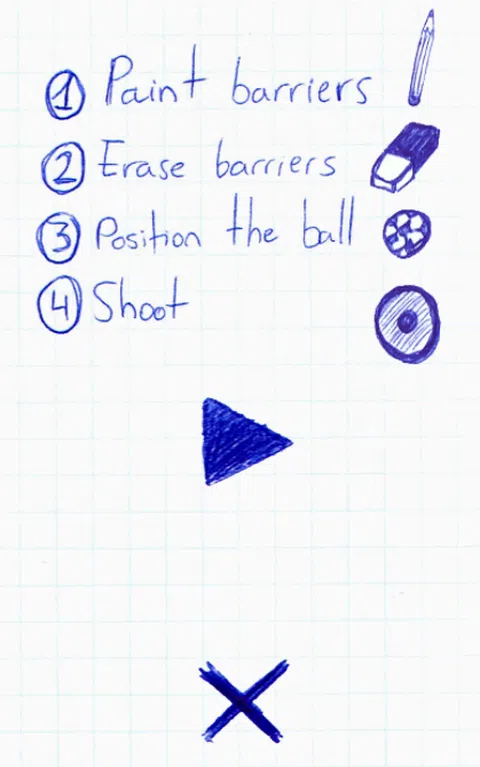 1 Paint barriers
2 Erase barriers
3 Position the ball
4 Shoot